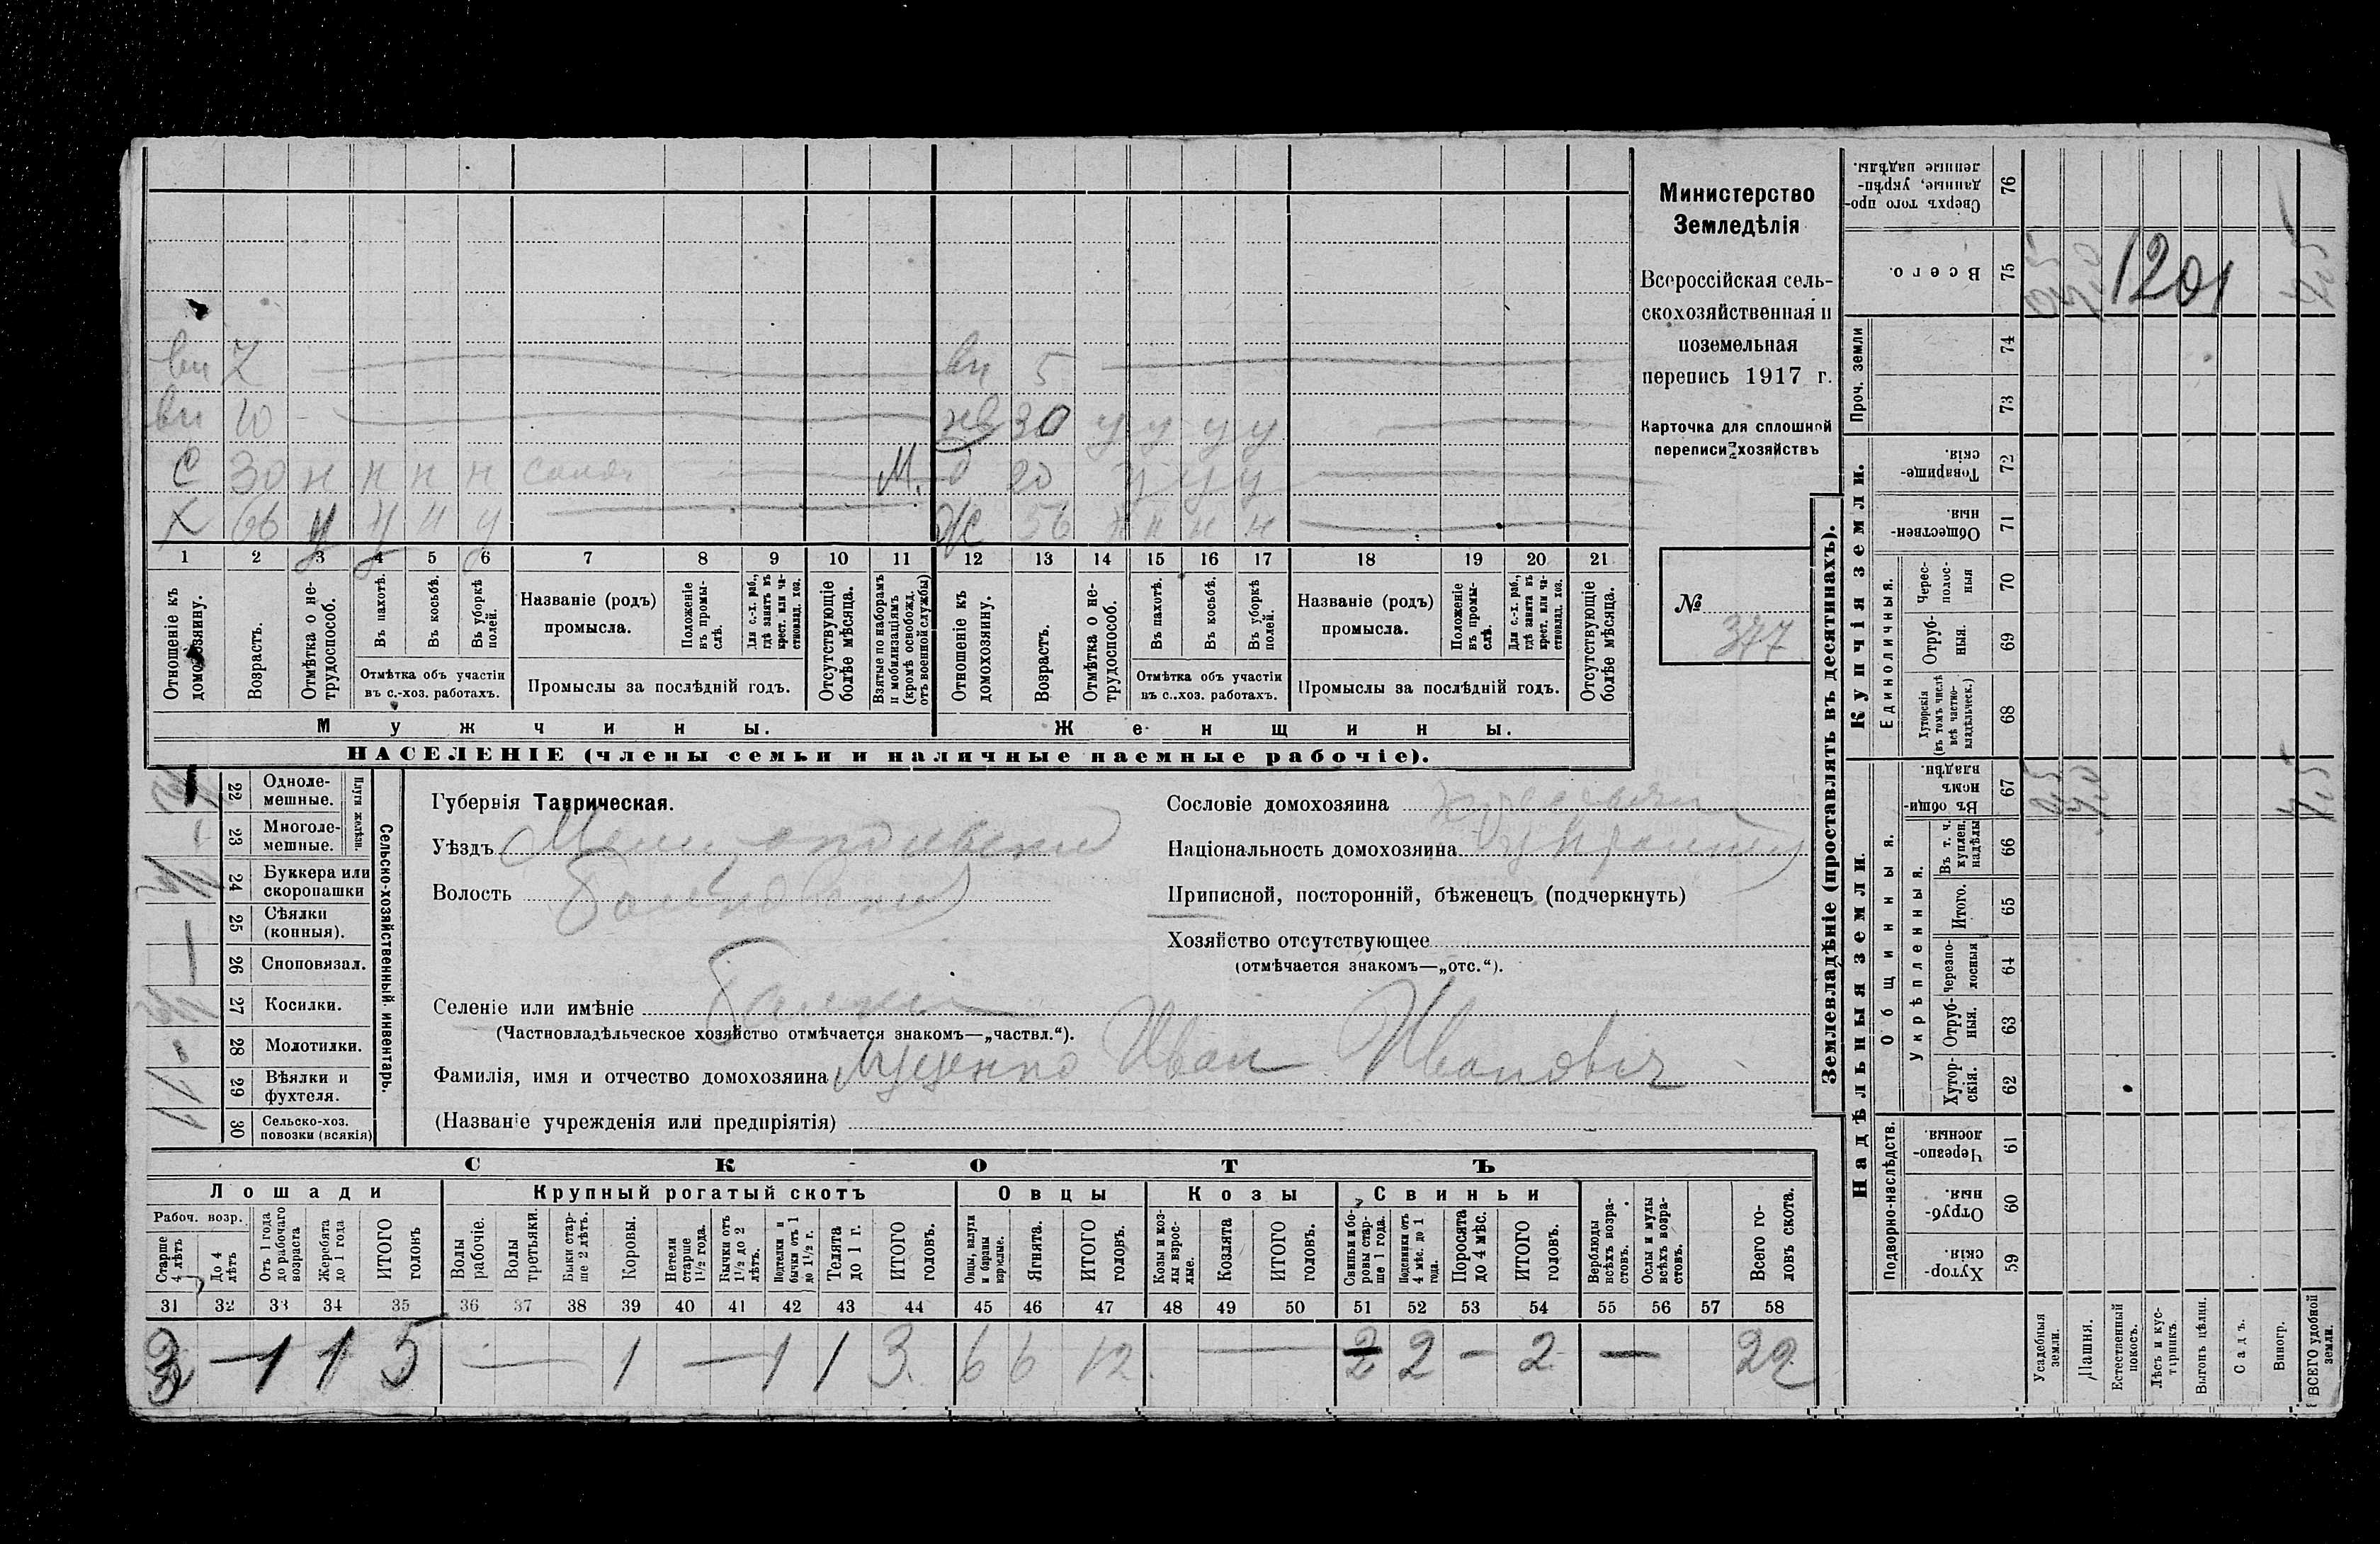 Министерство
Земледѣлія
Всероссійская сель-
скохозяйственная и
поземельная
перепись 1917 г.
Карточка для сплошной
переписи хозяйствъ
№ 377
вн 7 вн 5
вн 10 нев 30 у у у у
С 30 н н н н М. д 20 у у у
Х 66 у у у у Ж 56 н н н н
1 2 3 4 5 6 7 8 9 10 11 12 13 14 15 16 17 18 19 20 21
Отношеніе къ домохозяину.
Возрастъ.
Отмѣтка о не-трудоспособ.
Въ пахотѣ.
Въ косьбѣ.
Въ уборкѣ полей.
Отмѣтка объ участіи въ с.-хоз. работахъ.
Названіе (родъ) промысла.
Положеніе въ промы-слѣ.
Для с.-х. раб., гдѣ занятъ въ крест. или ча-стновлад. хоз.
Промыслы за послѣдній годъ.
Отсутствующіе болѣе мѣсяца.
Взятые по наборамъ и мобилизаціямъ (кромѣ освобожд. отъ военной службы)
Отношеніе къ домохозяину.
Возрастъ.
Отмѣтка о не-трудоспособ.
Въ пахотѣ.
Въ косьбѣ.
Въ уборкѣ полей.
Отмѣтка объ участіи въ с..хоз. работахъ.
Названіе (родъ) промысла.
Положеніе въ промы-слѣ.
Для с.-х. раб., гдѣ занята въ крест. или ча-стновлад. хоз.
Промыслы за послѣдній годъ.
Отсутствующіе болѣе мѣсяца.
Мужчины. Женщины.
НАСЕЛЕНІЕ (члены семьи и наличные наемные рабочіе).
22 Одноле-мешные.
23 Многоле-мешные.
Плуги желѣзн.
24 Буккера или скоропашки
25 Сѣялки (конныя).
26 Сноповязал.
27 Косилки.
28 Молотилки.
29 Вѣялки и фухтеля.
30 Сельско-хоз. повозки (всякія)
Сельско-хозяйственный инвентарь.
Губернія Таврическая.
Уѣздъ
Волость
Селеніе или имѣніе Балки
(Частновладѣльческое хозяйство отмѣчается знакомъ—„частвл.“).
Фамилія, имя и отчество домохозяина Иван Иванович
(Названіе учрежденія или предпріятія)
Сословіе домохозяина
Національность домохозяина
Приписной, посторонній, бѣженецъ (подчеркнуть)
Хозяйство отсутствующее
(отмѣчается знакомъ—„отс.“).
СКОТЪ
Лошади Крупный рогатый скотъ Овцы Козы Свиньи
Рабоч. возр.
Старше 4 лѣтъ
До 4 лѣтъ
Отъ 1 года до рабочаго возраста
Жеребята до 1 года
ИТОГО головъ
Волы рабочіе.
Волы третьяки.
Быки стар-ше 2 лѣтъ.
Коровы.
Нетели старше 1½ года.
Бычки отъ 1½ до 2 лѣтъ.
Подтелки и бычки отъ 1 до 1½ г.
Телята до 1 г.
ИТОГО головъ.
Овцы, валухи и бараны взрослые.
Ягнята.
ИТОГО головъ.
Козы и коз-лы взрос-лые.
Козлята
ИТОГО головъ.
Свиньи и бо-ровы стар-ше 1 года.
Подсвинки отъ 4 мѣс. до 1 года.
Поросята до 4 мѣс.
ИТОГО головъ.
Верблюды всѣхъ возра-стовъ.
Ослы и мулы всѣхъ возра-стовъ.
Всего го-ловъ скота.
31 32 33 34 35 36 37 38 39 40 41 42 43 44 45 46 47 48 49 50 51 52 53 54 55 56 57 58
3 — 1 1 5 — 1 — 1 1 3 6 6 12 — 2 2 — 2 — 22
Землевладѣніе (проставлять въ десятинахъ).
Надѣльныя земли. Купчія земли. Проч. земли
Подворно-наслѣдств. Общинныя. Укрѣпленныя. Единоличныя.
59 Хутор-скія.
60 Отруб-ныя.
61 Черезпо-лосныя.
62 Хутор-скія.
63 Отруб-ныя.
64 Черезпо-лосныя
65 Итого.
66 Въ т. ч. куплен. надѣлы
67 Въ общи-номъ владѣн.
68 Хуторскія (въ томъ числѣ всѣ частно-владѣльческ.)
69 Отруб-ныя.
70 Черес-полос-ныя
71 Обществен-ныя.
72 Товарище-скія.
73
74
75 Всего.
76 Сверхъ того про-данные, укрѣп-ленные надѣлы.
1201
Усадебныя земли.
Пашня.
Естественный покосъ.
Лѣсъ и кус-тарникъ.
Выгонъ цѣлин.
Садъ.
Виногр.
ВСЕГО удобной земли.